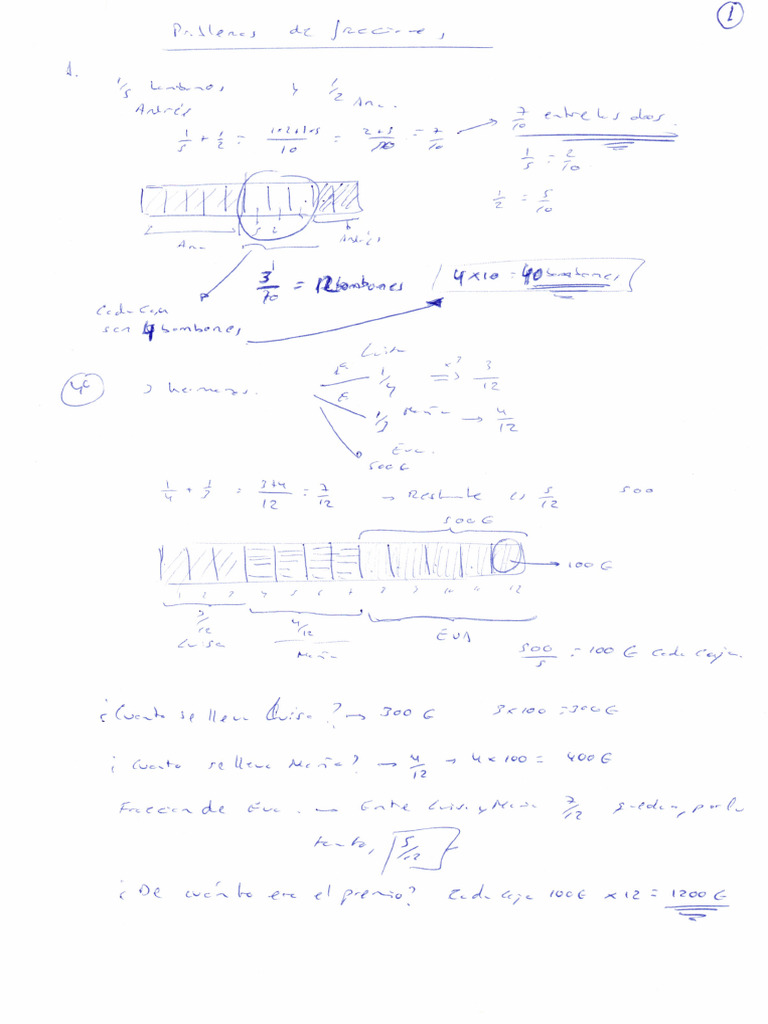 1
Problemas de fracciones
1.
1/5 bombones y 1/2 Ana.
Andrés
1/5 + 1/2 = 1·2+1·5/10 = 2+5/10 = 7/10 → 7/10 entre los dos.
1/5 = 2/10
1/2 = 5/10
Ana Andrés
3/10 = 12 bombones
4 x 10 = 40 bombones
Cada caja
son 4 bombones
4º
3 hermanas.
Luisa
1/4 => x3 3/12
1/3 María → 4/12
Eva.
500 €
1/4 + 1/3 = 3+4/12 = 7/12 → Restante es 5/12 500
500 €
100 €
1 2 3 4 5 6 7 8 9 10 11 12
3/12 4/12 EVA
Luisa María
500/5 = 100 € cada caja.
¿Cuanto se lleva Luisa? → 300 € 3x100 = 300 €
¿Cuanto se lleva María? → 4/12 → 4x100 = 400 €
Fracción de Eva. → Entre Luisa y María 7/12 quedan, por lo
tanto, 5/12
¿De cuánto era el premio? Cada caja 100 € x 12 = 1200 €